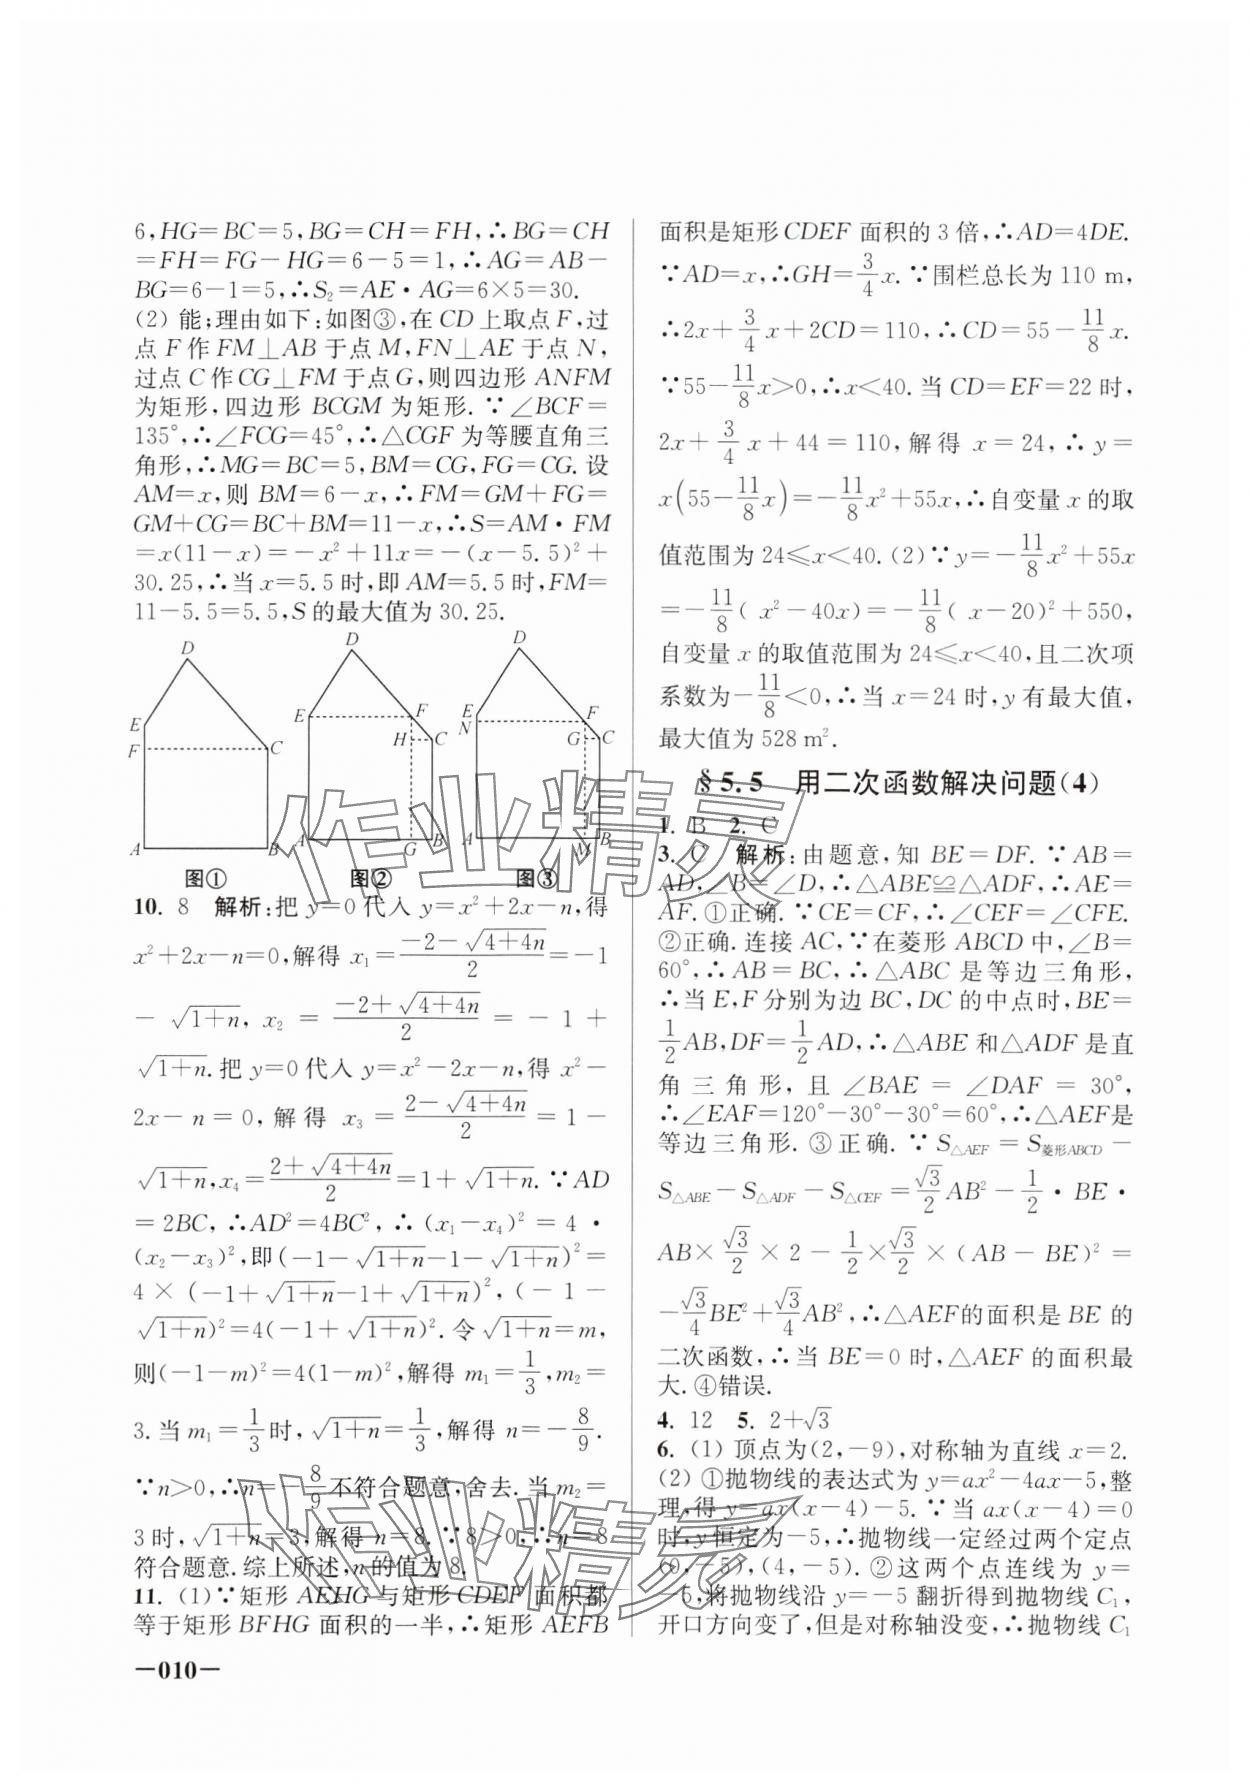 6,HG=BC=5,BG=CH=FH,∴BG=CH
=FH=FG-HG=6-5=1,∴AG=AB-
BG=6-1=5,∴S₂=AE·AG=6×5=30.
(2) 能;理由如下:如图③,在CD上取点F,过
点F作FM⊥AB于点M,FN⊥AE于点N,
过点C作CG⊥FM于点G,则四边形ANFM
为矩形,四边形BCGM为矩形.∵∠BCF=
135°,∴∠FCG=45°,∴△CGF为等腰直角三
角形,∴MG=BC=5,BM=CG,FG=CG.设
AM=x,则BM=6-x,∴FM=GM+FG=
GM+CG=BC+BM=11-x,∴S=AM·FM
=x(11-x)=-x²+11x=-(x-5.5)²+
30.25,∴当x=5.5时,即AM=5.5时,FM=
11-5.5=5.5,S的最大值为30.25.
D
E
F
C
A
B
图①
D
E
F
H
C
A
G
B
图②
D
E
N
F
G
C
A
M
B
图③
10. 8 解析:把y=0代入y=x²+2x-n,得
x²+2x-n=0,解得x₁=(-2-√(4+4n))/2=-1
-√(1+n),x₂=(-2+√(4+4n))/2=-1+
√(1+n).把y=0代入y=x²-2x-n,得x²-
2x-n=0,解得x₃=(2-√(4+4n))/2=1-
√(1+n),x₄=(2+√(4+4n))/2=1+√(1+n).∵AD
=2BC,∴AD²=4BC²,∴(x₁-x₄)²=4·
(x₂-x₃)²,即(-1-√(1+n)-1-√(1+n))²=
4×(-1+√(1+n)-1+√(1+n))²,(-1-
√(1+n))²=4(-1+√(1+n))².令√(1+n)=m,
则(-1-m)²=4(1-m)²,解得m₁=1/3,m₂=
3.当m₁=1/3时,√(1+n)=1/3,解得n=-8/9.
∵n>0,∴n=-8/9不符合题意,舍去.当m₂=
3时,√(1+n)=3,解得n=8.∵8>0,∴n=8
符合题意.综上所述,n的值为8.
11. (1)∵矩形AEHG与矩形CDEF面积都
等于矩形BFHG面积的一半,∴矩形AEFB
—010—
面积是矩形CDEF面积的3倍,∴AD=4DE.
∵AD=x,∴GH=3/4x.∵围栏总长为110 m,
∴2x+3/4x+2CD=110,∴CD=55-11/8x.
∵55-11/8x>0,∴x<40.当CD=EF=22时,
2x+3/4x+44=110,解得x=24,∴y=
x(55-11/8x)=-11/8x²+55x,∴自变量x的取
值范围为24≤x<40.(2)∵y=-11/8x²+55x
=-11/8(x²-40x)=-11/8(x-20)²+550,
自变量x的取值范围为24≤x<40,且二次项
系数为-11/8<0,∴当x=24时,y有最大值,
最大值为528 m².
§5.5 用二次函数解决问题(4)
1. B 2. C
3. C 解析:由题意,知BE=DF.∵AB=
AD,∠B=∠D,∴△ABE≌△ADF,∴AE=
AF.①正确.∵CE=CF,∴∠CEF=∠CFE.
②正确.连接AC,∵在菱形ABCD中,∠B=
60°,∴AB=BC,∴△ABC是等边三角形,
∴当E,F分别为边BC,DC的中点时,BE=
1/2AB,DF=1/2AD,∴△ABE和△ADF是直
角三角形,且∠BAE=∠DAF=30°,
∴∠EAF=120°-30°-30°=60°,∴△AEF是
等边三角形.③正确.∵S△AEF=S菱形ABCD-
S△ABE-S△ADF-S△CEF=√3/2AB²-1/2·BE·
AB×√3/2×2-1/2×√3/2×(AB-BE)²=
-√3/4BE²+√3/4AB²,∴△AEF的面积是BE的
二次函数,∴当BE=0时,△AEF的面积最
大.④错误.
4. 12 5. 2+√3
6. (1) 顶点为(2,-9),对称轴为直线x=2.
(2) ①抛物线的表达式为y=ax²-4ax-5,整
理,得y=ax(x-4)-5.∵当ax(x-4)=0
时,y恒定为-5,∴抛物线一定经过两个定点
(0,-5),(4,-5).②这两个点连线为y=
-5,将抛物线沿y=-5翻折得到抛物线C₁,
开口方向变了,但是对称轴没变,∴抛物线C₁
作业精灵
作业精灵